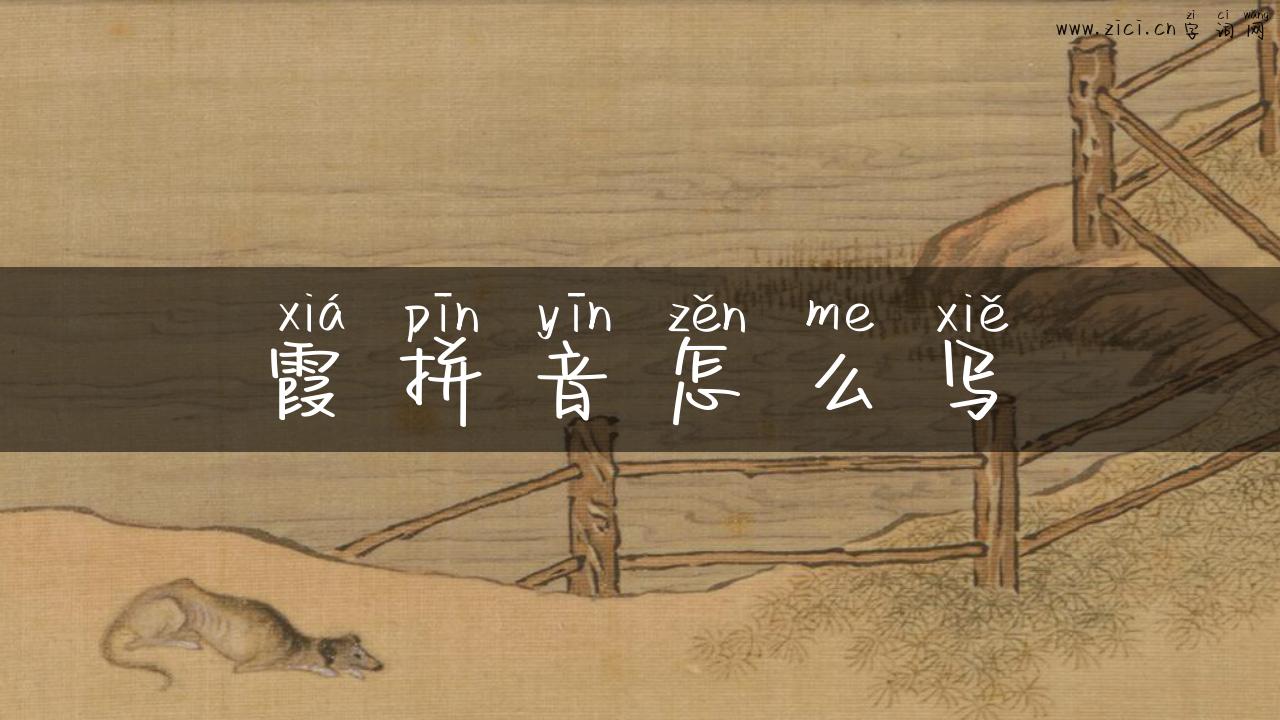 zi ci wang
www.zici.cn 字词网
xiá pīn yīn zěn me xiě
霞拼音怎么写